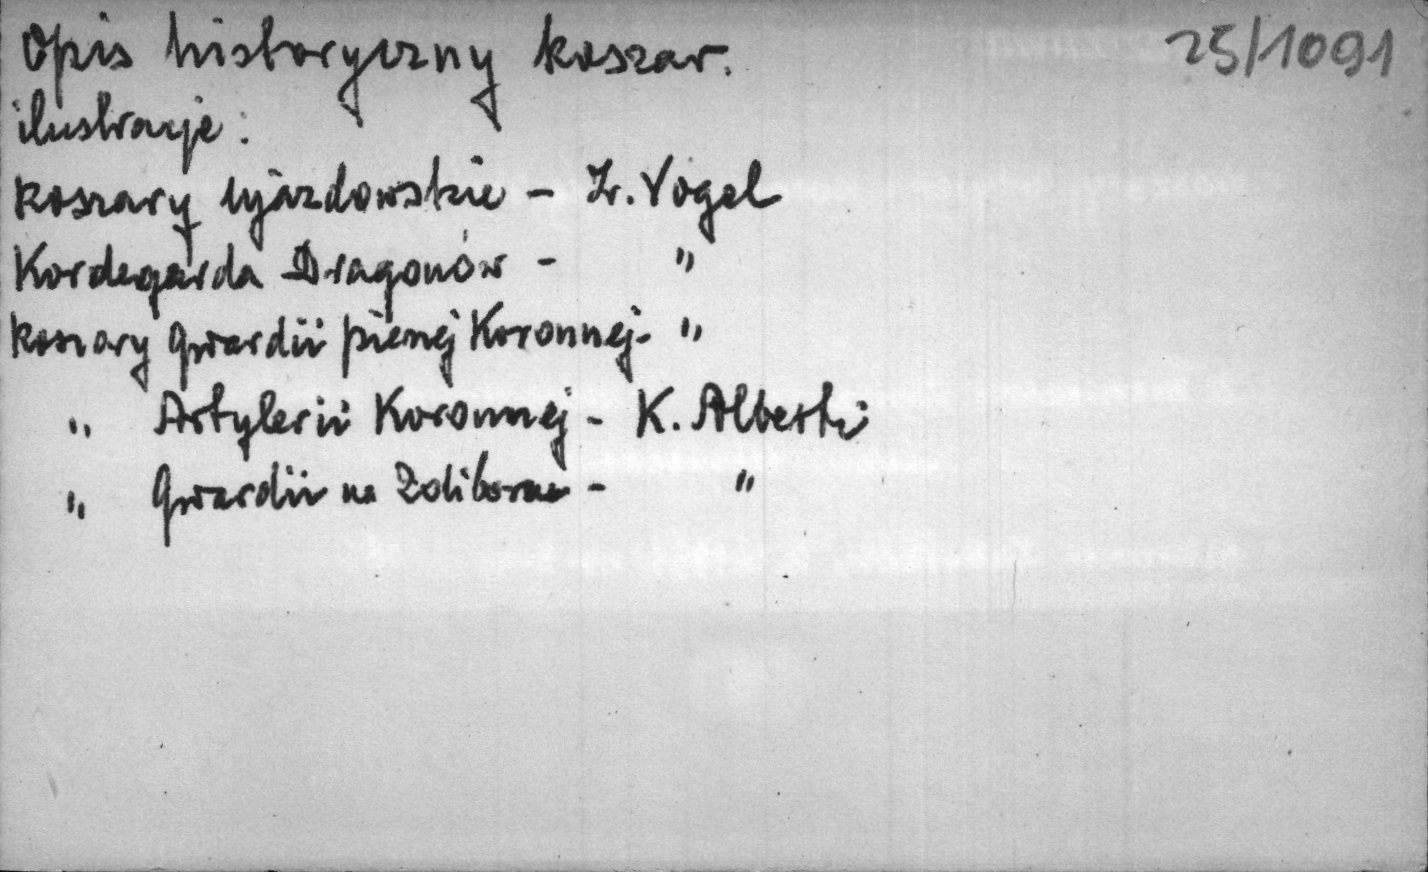 Opis historyczny koszar. 25/1091
ilustracje:
koszary Ujazdowskie - Z. Vogel
Kordegarda Dragonów - "
koszary Gwardii pieszej Koronnej - "
" Artylerii Koronnej - K. Alberti
" Gwardii na Żoliborzu - "